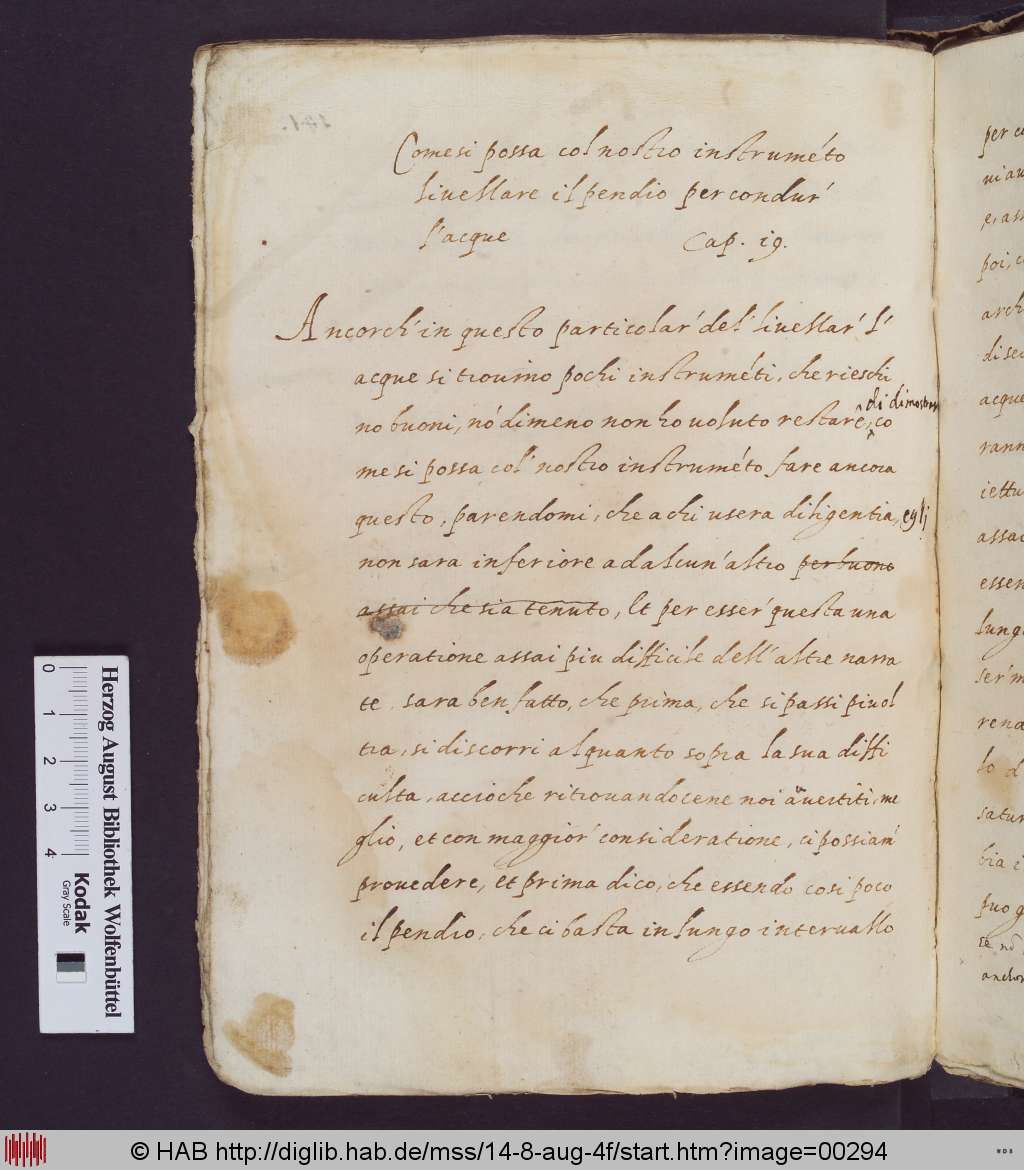 Come si possa col nostro instrumẽto
livellare il pendio per condur'
l'acque Cap. 19.
Ancorch' in questo particolar' del' livellar' l'
acque si trovino pochi instrumẽti, che rieschi
no buoni, nõ dimeno non ho voluto restare, di dimostrar co
me si possa col' nostro instrumẽto fare ancora
questo, parendomi, che a chi usera diligentia, egli
non sara inferiore ad alcun' altro per buono
assai che sia tenuto, Et per esser' questa una
operatione assai piu difficile dell' altre narra
te, sara ben fatto, che prima, che si passi piu ol
tra, si discorri alquanto sopra la sua diffi
culta, accioche ritrovandocene noi avertiti, me
glio, et con maggior' consideratione, ci possiam'
provedere, et prima dico, che essendo cosi poco
il pendio, che ci basta in lungo intervallo
per co
e, ass
poi, c
arch
di sec
acque
rann
iettu
assai
essen
lungo
ser' m
rend
lo d
satur
bia i
puo g
anchor
0 1 2 3 4
Herzog August Bibliothek Wolfenbüttel
Kodak
Gray Scale
© HAB http://diglib.hab.de/mss/14-8-aug-4f/start.htm?image=00294